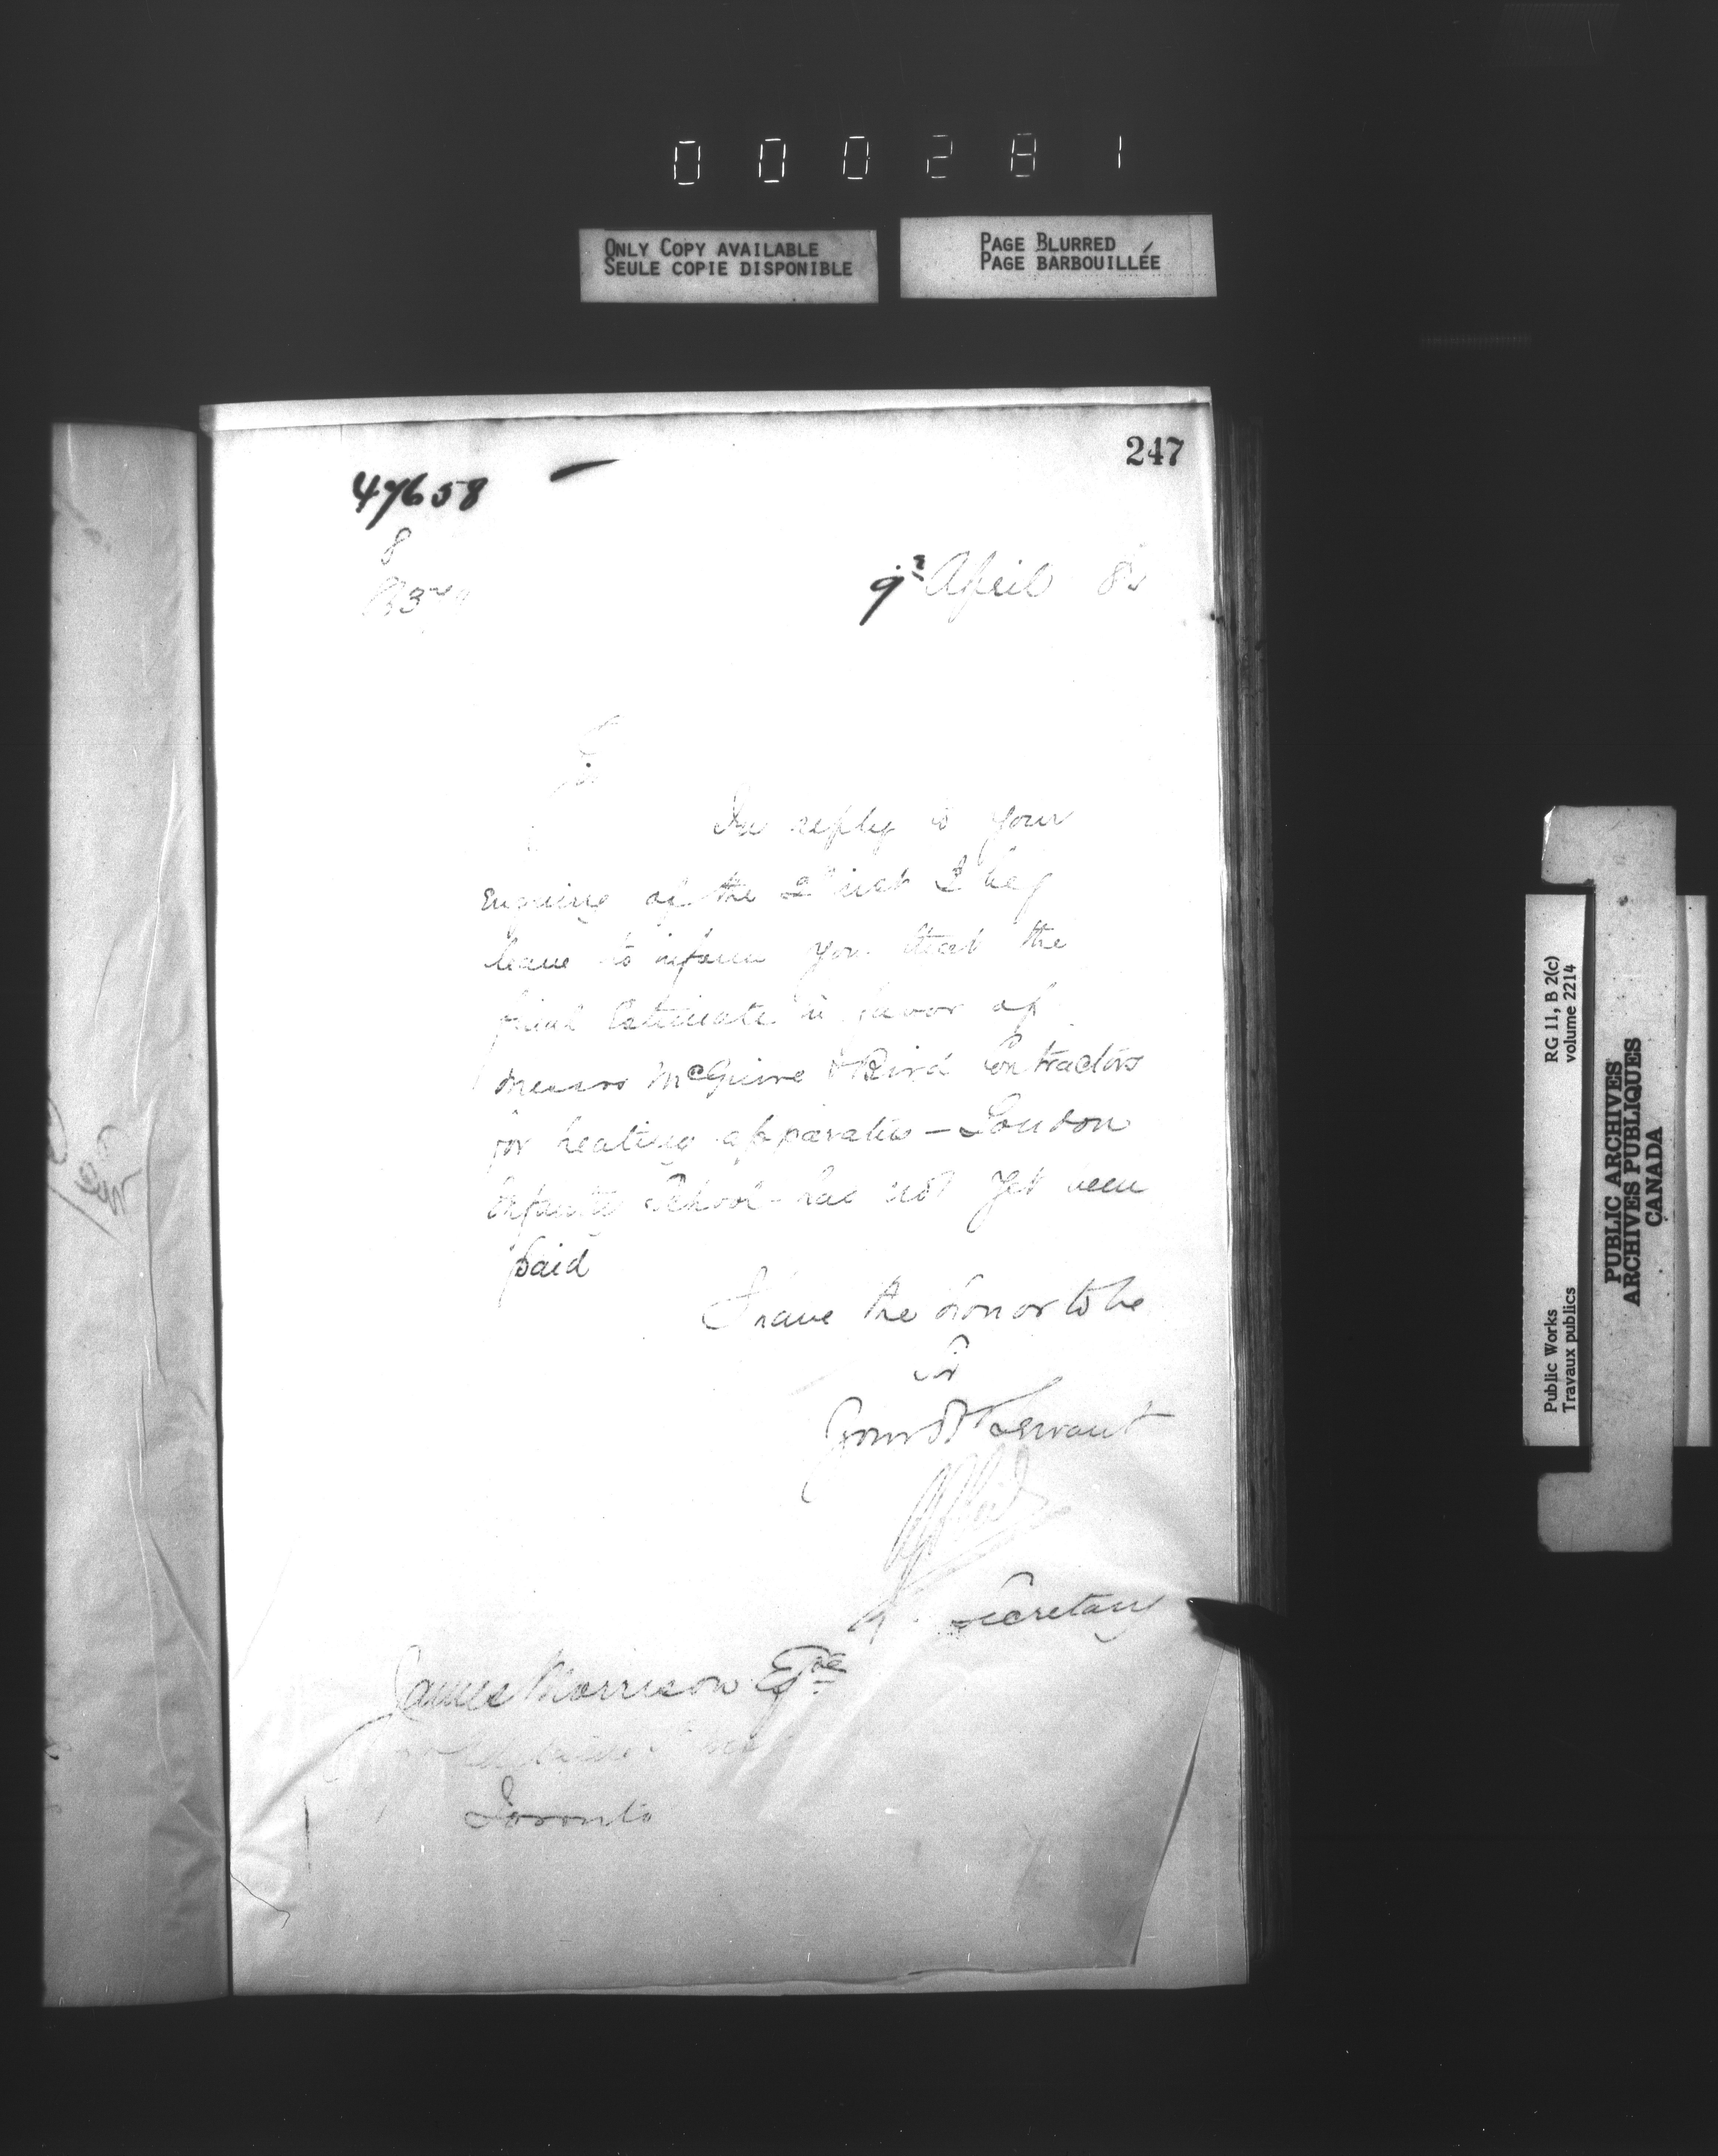 000281
ONLY COPY AVAILABLE
SEULE COPIE DISPONIBLE
PAGE BLURRED
PAGE BARBOUILLÉE
247
47658
8
9 April 8
Sir
In reply to your
enquiry of the 2 inst I beg
leave to inform you that the
final Estimate in favor of
Messrs McGuire & Bird Contractors
for heating apparatus — London
Infantry School - has not yet been
paid
I have the honor to be
Sir
Your Obt Servant
Secretary
James Morrison Eqre
Toronto
RG 11, B 2(c)
volume 2214
Public Works
Travaux publics
PUBLIC ARCHIVES
ARCHIVES PUBLIQUES
CANADA